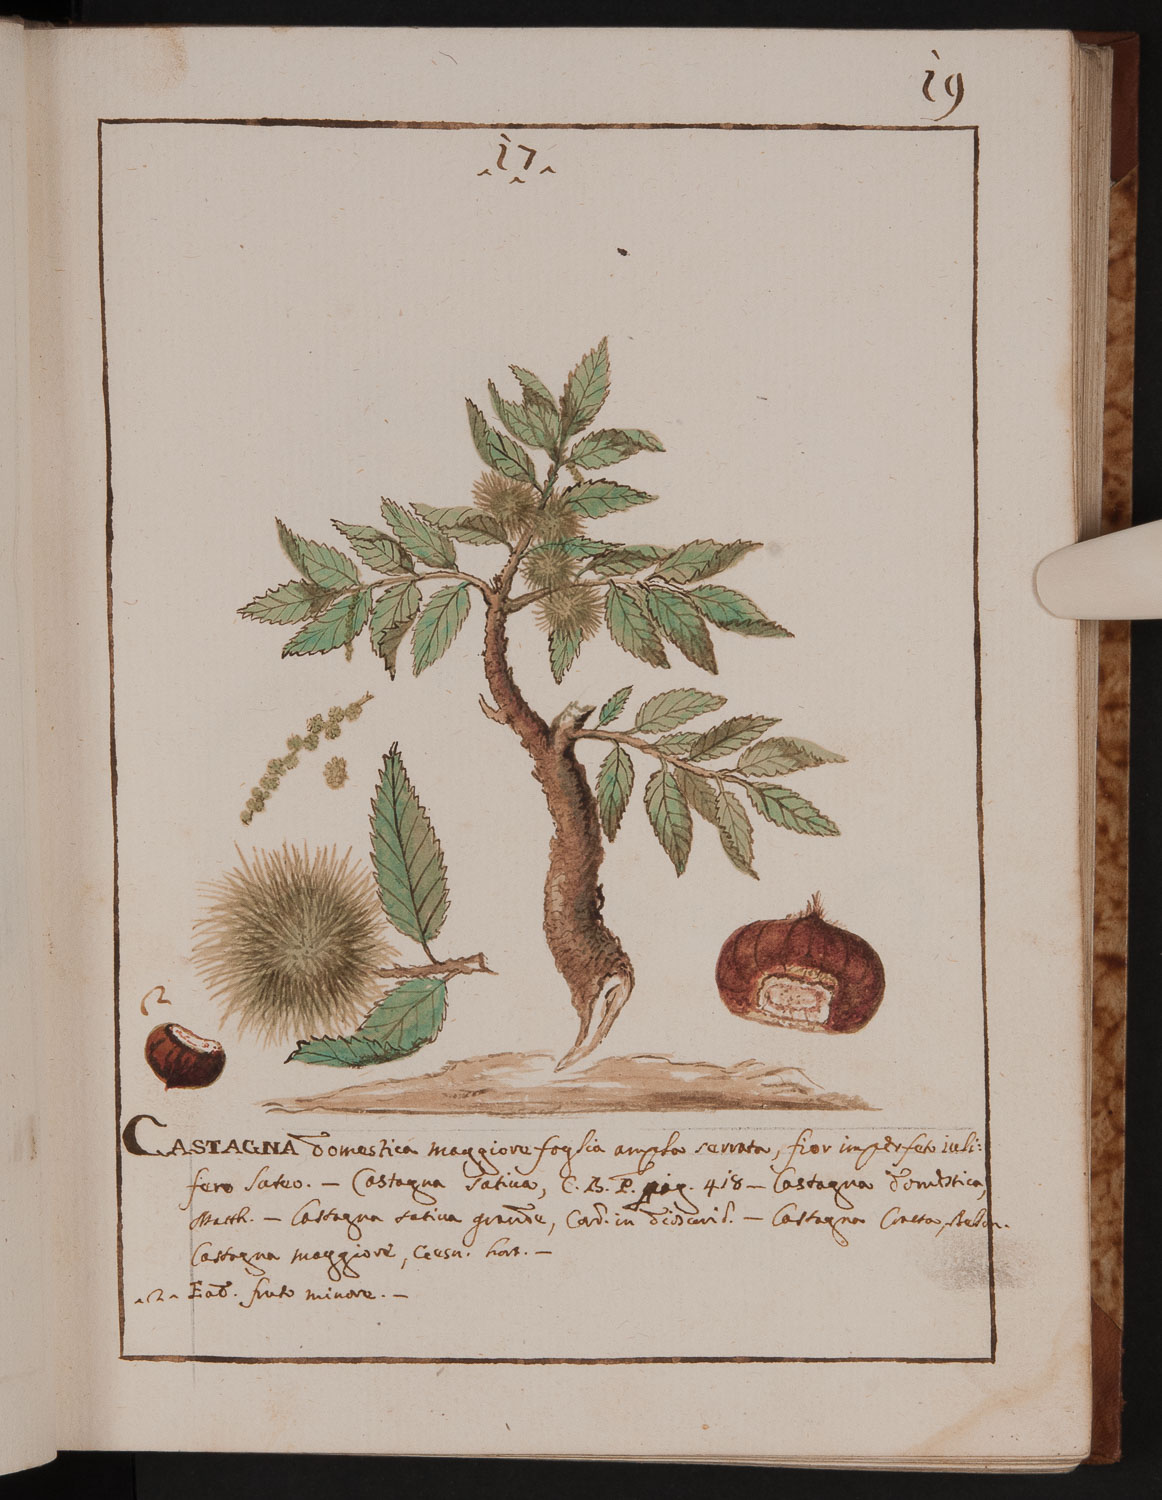 19
17
CASTAGNA domestica maggiore foglia ampla serrata, fior imperfeto iuli:
fero luteo. – Castagna sativa, C. B. P. pag. 418 – Castagna domestica,
Matth. – Castagna sativa grande, Cord. in dioscorid. –  Castagna
Castagna maggiore, Caesn. hort. –
2 Ead. fruto minore. –
2